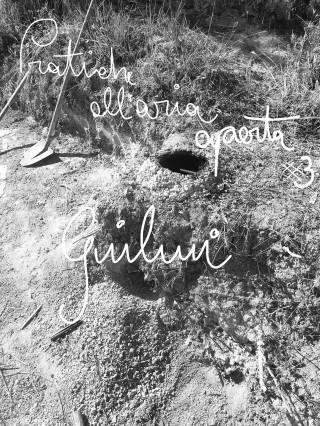 Pratiche
all'aria
aperta
x3
Guilmi